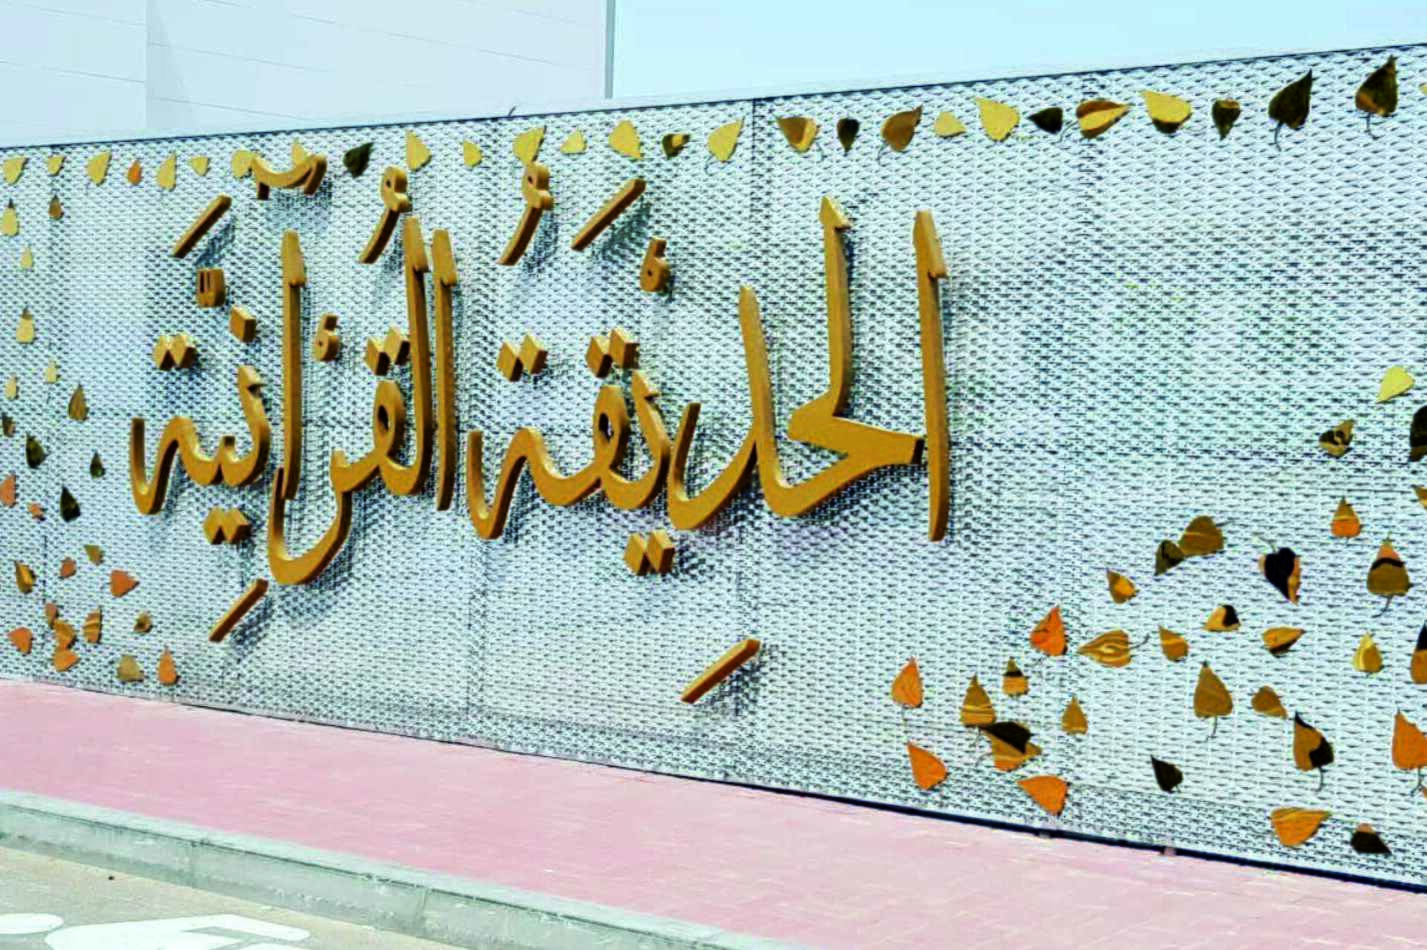 الحَدِيْقَةُ القُرْآنِيَّةُ